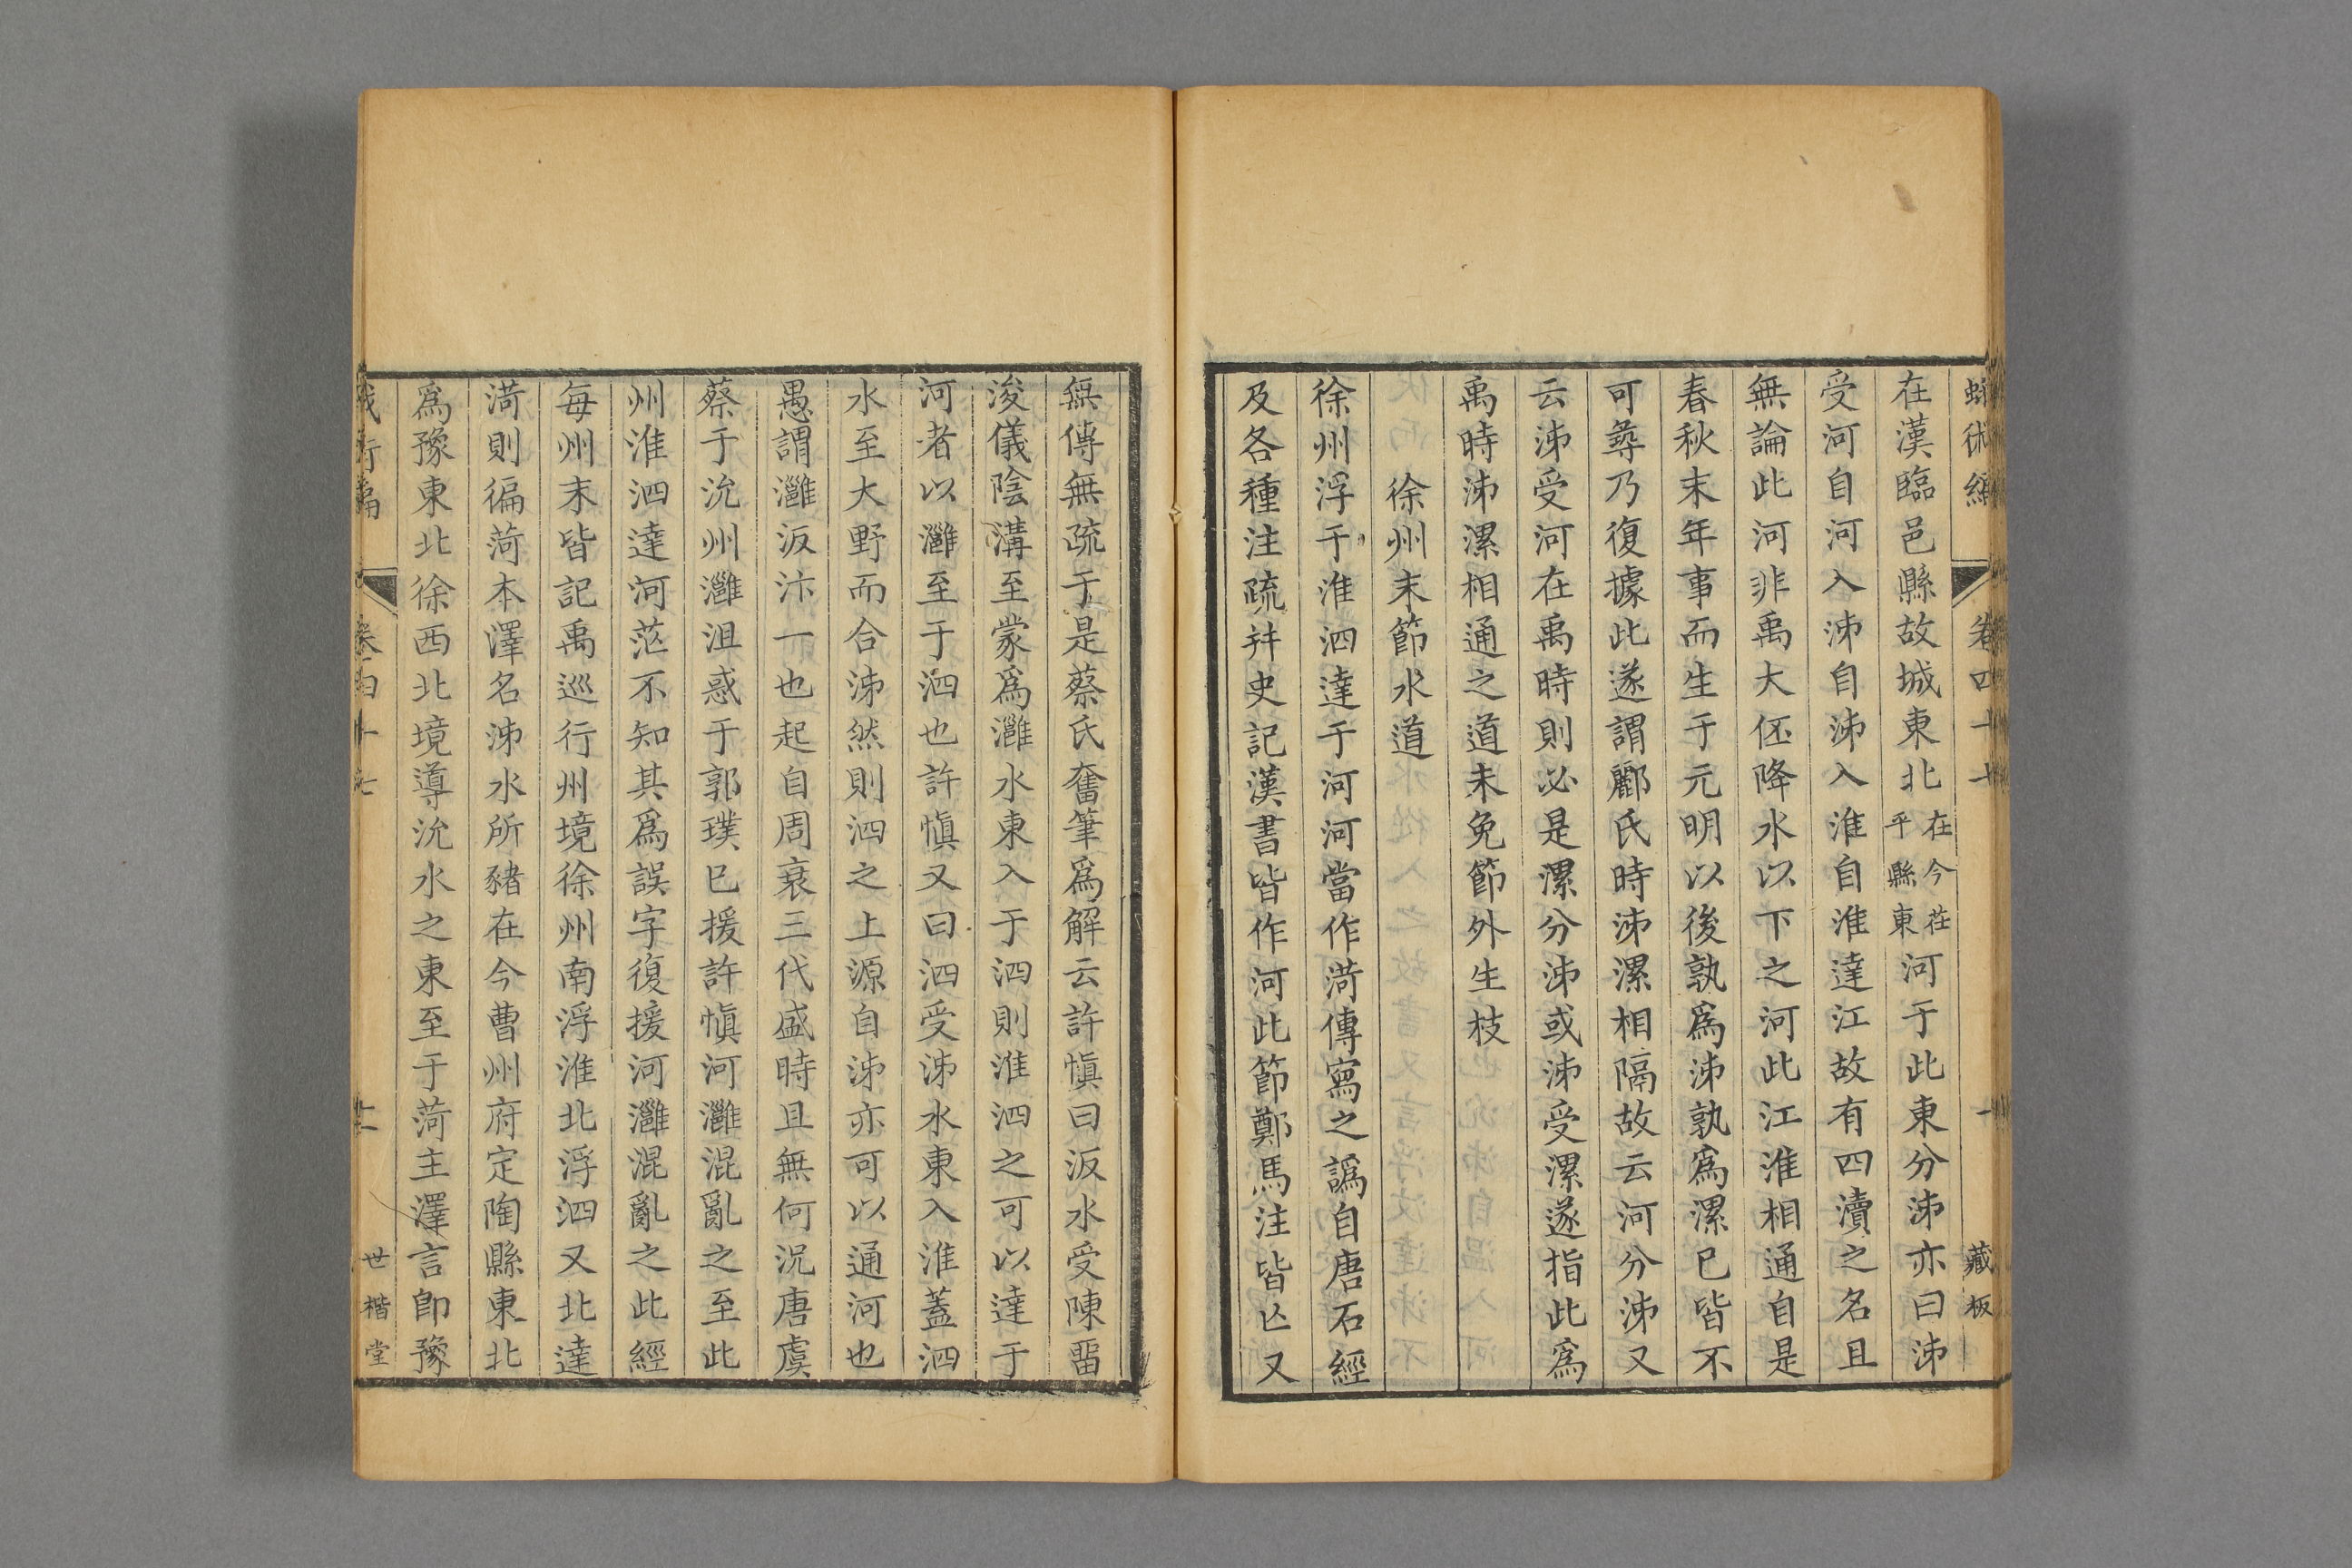 蛾術編 卷四十七 十 藏板
在漢臨邑縣故城東北在今茌平縣東河于此東分泲亦曰泲
受河自河入泲自泲入淮自淮達江故有四瀆之名且
無論此河非禹大伾降水以下之河此江淮相通自是
春秋末年事而生于元明以後孰爲泲孰爲漯已皆不
可尋乃復據此遂謂酈氏時泲漯相隔故云河分泲又
云泲受河在禹時則必是漯分泲或泲受漯遂指此爲
禹時泲漯相通之道未免節外生枝
徐州末節水道
徐州浮于淮泗達于河河當作菏傳寫之譌自唐石經
及各種注疏并史記漢書皆作河此節鄭馬注皆亾又
無傳無疏于是蔡氏奮筆爲解云許愼曰汳水受陳畱
浚儀陰溝至蒙爲灉水東入于泗則淮泗之可以達于
河者以灉至于泗也許愼又曰泗受泲水東入淮蓋泗
水至大野而合泲然則泗之上源自泲亦可以通河也
愚謂灉汳汴一也起自周衰三代盛時且無何況唐虞
蔡于沇州灉沮惑于郭璞已援許愼河灉混亂之至此
州淮泗達河茫不知其爲誤字復援河灉混亂之此經
每州末皆記禹巡行州境徐州南浮淮北浮泗又北達
菏則徧菏本澤名泲水所豬在今曹州府定陶縣東北
爲豫東北徐西北境導沇水之東至于菏主澤言卽豫
世楷堂